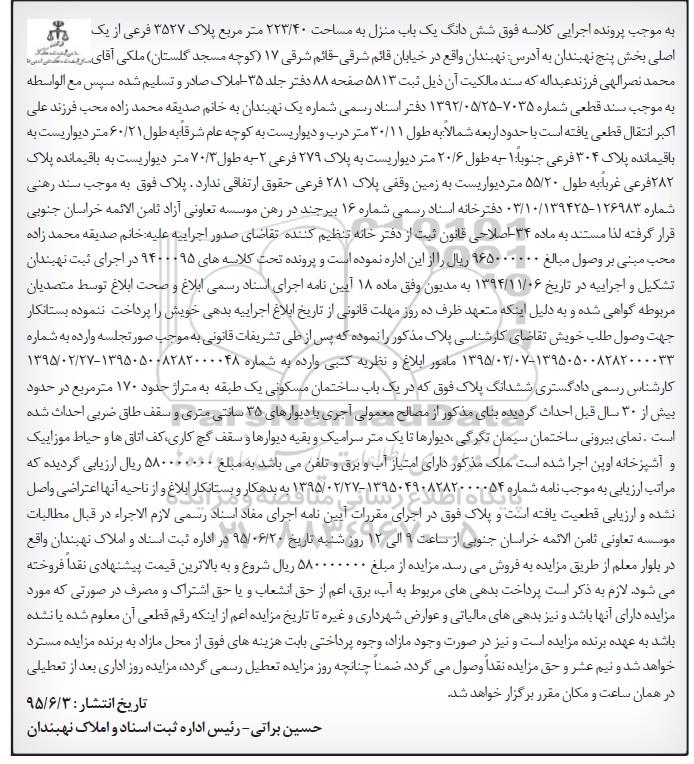 به موجب پرونده اجرایی کلاسه فوق شش دانگ یک باب منزل به مساحت ۲۲۳/۴۰ متر مربع پلاک ۳۵۲۷ فرعی از یک
اصلی بخش پنج نهبندان به آدرس: نهبندان واقع در خیابان قائم شرقی-قائم شرقی ۱۷ (کوچه مسجد گلستان) ملکی آقای
محمد نصرالهی فرزندعبداله که سند مالکیت آن ذیل ثبت ۵۸۱۳ صفحه ۸۸ دفتر جلد ۳۵-املاک صادر و تسلیم شده سپس مع الواسطه
به موجب سند قطعی شماره ۷۰۳۵-۱۳۹۲/۰۵/۲۵ دفتر اسناد رسمی شماره یک نهبندان به خانم صدیقه محمد زاده محب فرزند علی
اکبر انتقال قطعی یافته است با حدود اربعه شمالاً:به طول ۳۰/۱۱ متر درب و دیواریست به کوچه عام شرقاً:به طول ۶۰/۲۱ متر دیواریست به
باقیمانده پلاک ۳۰۴ فرعی جنوباً:۱-به طول ۲۰/۶ متر دیواریست به پلاک ۲۷۹ فرعی ۲-به طول ۷۰/۳ متر دیواریست به باقیمانده پلاک
۲۸۲فرعی غرباً:به طول ۵۵/۲۰ متردیواریست به زمین وقفی پلاک ۲۸۱ فرعی حقوق ارتفاقی ندارد . پلاک فوق به موجب سند رهنی
شماره ۱۲۶۹۸۳-۰۳/۱۰/۱۳۹۴۲۵ دفترخانه اسناد رسمی شماره ۱۶ بیرجند در رهن موسسه تعاونی آزاد ثامن الائمه خراسان جنوبی
قرار گرفته لذا مستند به ماده ۳۴-اصلاحی قانون ثبت از دفتر خانه تنظیم کننده تقاضای صدور اجراییه علیه:خانم صدیقه محمد زاده
محب مبنی بر وصول مبالغ ۹۶۵۰۰۰۰۰۰ ریال را از این اداره نموده است و پرونده تحت کلاسه های ۹۴۰۰۰۹۵ در اجرای ثبت نهبندان
تشکیل و اجراییه در تاریخ ۱۳۹۴/۱۱/۰۶ به مدیون وفق ماده ۱۸ آیین نامه اجرای اسناد رسمی ابلاغ و صحت ابلاغ توسط متصدیان
مربوطه گواهی شده و به دلیل اینکه متعهد ظرف ده روز مهلت قانونی از تاریخ ابلاغ اجراییه بدهی خویش را پرداخت ننموده بستانکار
جهت وصول طلب خویش تقاضای کارشناسی پلاک مذکور را نموده که پس از طی تشریفات قانونی به موجب صورتجلسه وارده به شماره
۱۳۹۵۰۵۰۰۸۲۸۲۰۰۰۰۳۳-۱۳۹۵/۰۲/۰۷ مامور ابلاغ و نظریه کتبی وارده به شماره ۱۳۹۵۰۵۰۰۸۲۸۲۰۰۰۰۴۸-۱۳۹۵/۰۲/۲۷
کارشناس رسمی دادگستری ششدانگ پلاک فوق که در یک باب ساختمان مسکونی یک طبقه به متراژ حدود ۱۷۰ مترمربع در حدود
بیش از ۳۰ سال قبل احداث گردیده بنای مذکور از مصالح معمولی آجری با دیوارهای ۳۵ سانتی متری و سقف طاق ضربی احداث شده
است . نمای بیرونی ساختمان سیمان تگرگی ،دیوارها تا یک متر سرامیک و بقیه دیوارها و سقف گچ کاری،کف اتاق ها و حیاط موزاییک
و آشپزخانه اوپن اجرا شده است .ملک مذکور دارای امتیاز آب و برق و تلفن می باشد به مبلغ ۵۸۰۰۰۰۰۰۰ ریال ارزیابی گردیده که
مراتب ارزیابی به موجب نامه شماره ۱۳۹۵۰۴۹۰۸۲۸۲۰۰۰۰۵۴-۱۳۹۵/۰۲/۲۷ به بدهکار و بستانکار ابلاغ و از ناحیه آنها اعتراضی واصل
نشده و ارزیابی قطعیت یافته است و پلاک فوق در اجرای مقررات آیین نامه اجرای مفاد اسناد رسمی لازم الاجراء در قبال مطالبات
موسسه تعاونی ثامن الائمه خراسان جنوبی از ساعت ۹ الی ۱۲ روز شنبه تاریخ ۹۵/۰۶/۲۰ در اداره ثبت اسناد و املاک نهبندان واقع
در بلوار معلم از طریق مزایده به فروش می رسد. مزایده از مبلغ ۵۸۰۰۰۰۰۰۰ ریال شروع و به بالاترین قیمت پیشنهادی نقداً فروخته
می شود. لازم به ذکر است پرداخت بدهی های مربوط به آب، برق، اعم از حق انشعاب و یا حق اشتراک و مصرف در صورتی که مورد
مزایده دارای آنها باشد و نیز بدهی های مالیاتی و عوارض شهرداری و غیره تا تاریخ مزایده اعم از اینکه رقم قطعی آن معلوم شده یا نشده
باشد به عهده برنده مزایده است و نیز در صورت وجود مازاد، وجوه پرداختی بابت هزینه های فوق از محل مازاد به برنده مزایده مسترد
خواهد شد و نیم عشر و حق مزایده نقداً وصول می گردد. ضمناً چنانچه روز مزایده تعطیل رسمی گردد، مزایده روز اداری بعد از تعطیلی
در همان ساعت و مکان مقرر برگزار خواهد شد.
تاریخ انتشار : ۹۵/۶/۳
حسین براتی - رئیس اداره ثبت اسناد و املاک نهبندان
ParsNamadData
پایگاه اطلاع رسانی مناقصه و مزایده
۰۲۱-۸۸۳۴۹۶۷۰-۵